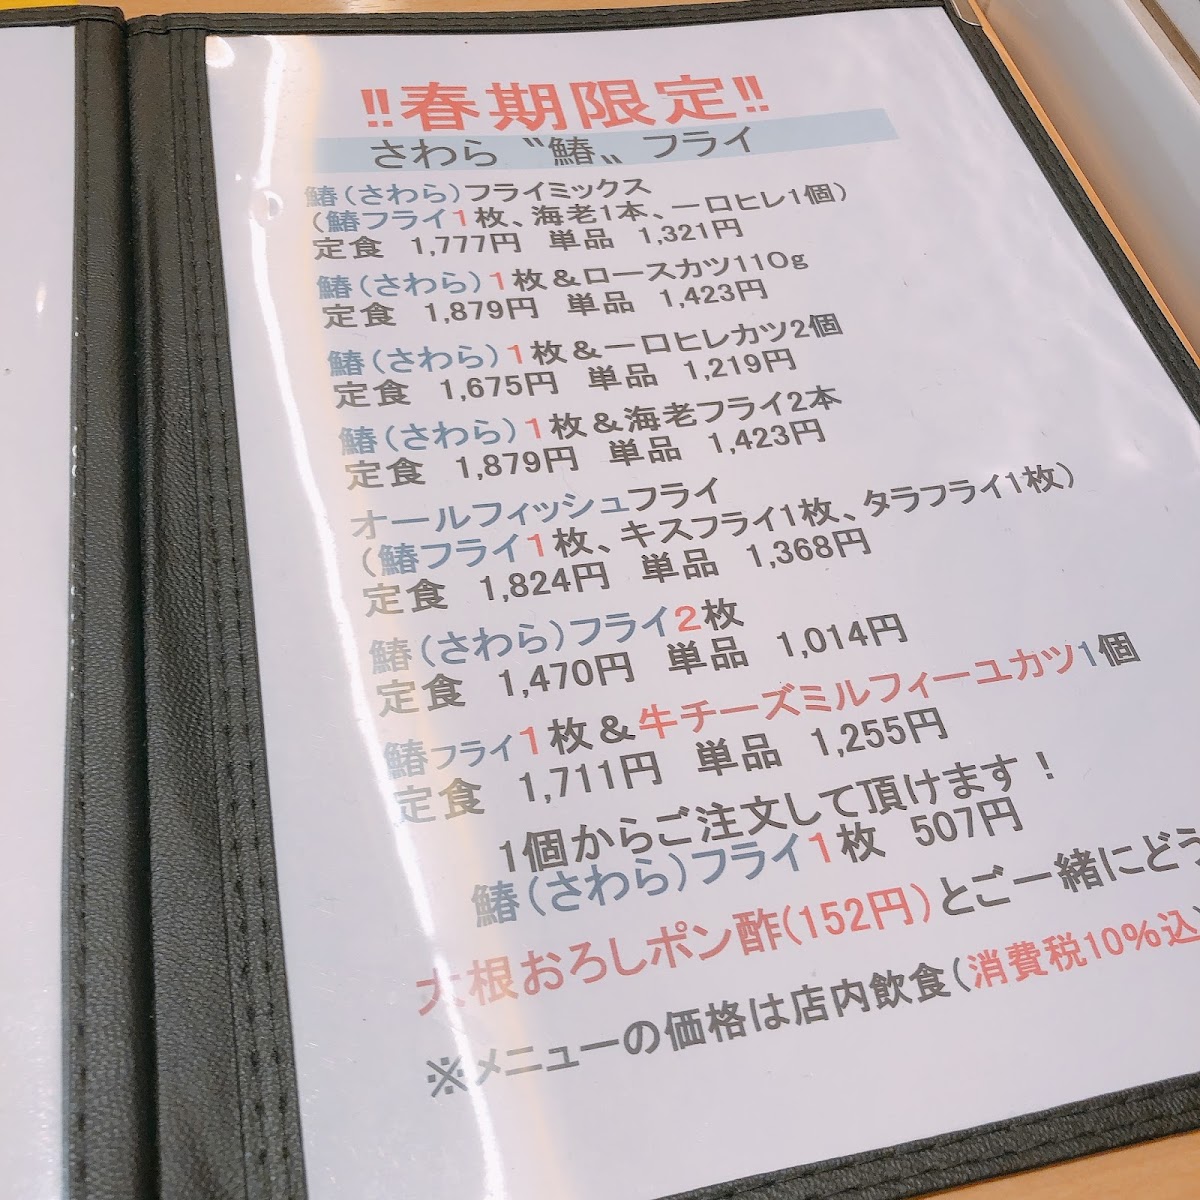 ‼春期限定‼
さわら〝鰆〟フライ
鰆(さわら)フライミックス
(鰆フライ1枚、海老1本、一口ヒレ1個)
定食 1,777円 単品 1,321円
鰆(さわら)1枚&ロースカツ110g
定食 1,879円 単品 1,423円
鰆(さわら)1枚&一口ヒレカツ2個
定食 1,675円 単品 1,219円
鰆(さわら)1枚&海老フライ2本
定食 1,879円 単品 1,423円
オールフィッシュフライ
(鰆フライ1枚、キスフライ1枚、タラフライ1枚)
定食 1,824円 単品 1,368円
鰆(さわら)フライ2枚
定食 1,470円 単品 1,014円
鰆フライ1枚&牛チーズミルフィーユカツ1個
定食 1,711円 単品 1,255円
1個からご注文して頂けます!
鰆(さわら)フライ1枚 507円
大根おろしポン酢(152円)とご一緒にどう
※メニューの価格は店内飲食(消費税10%込)